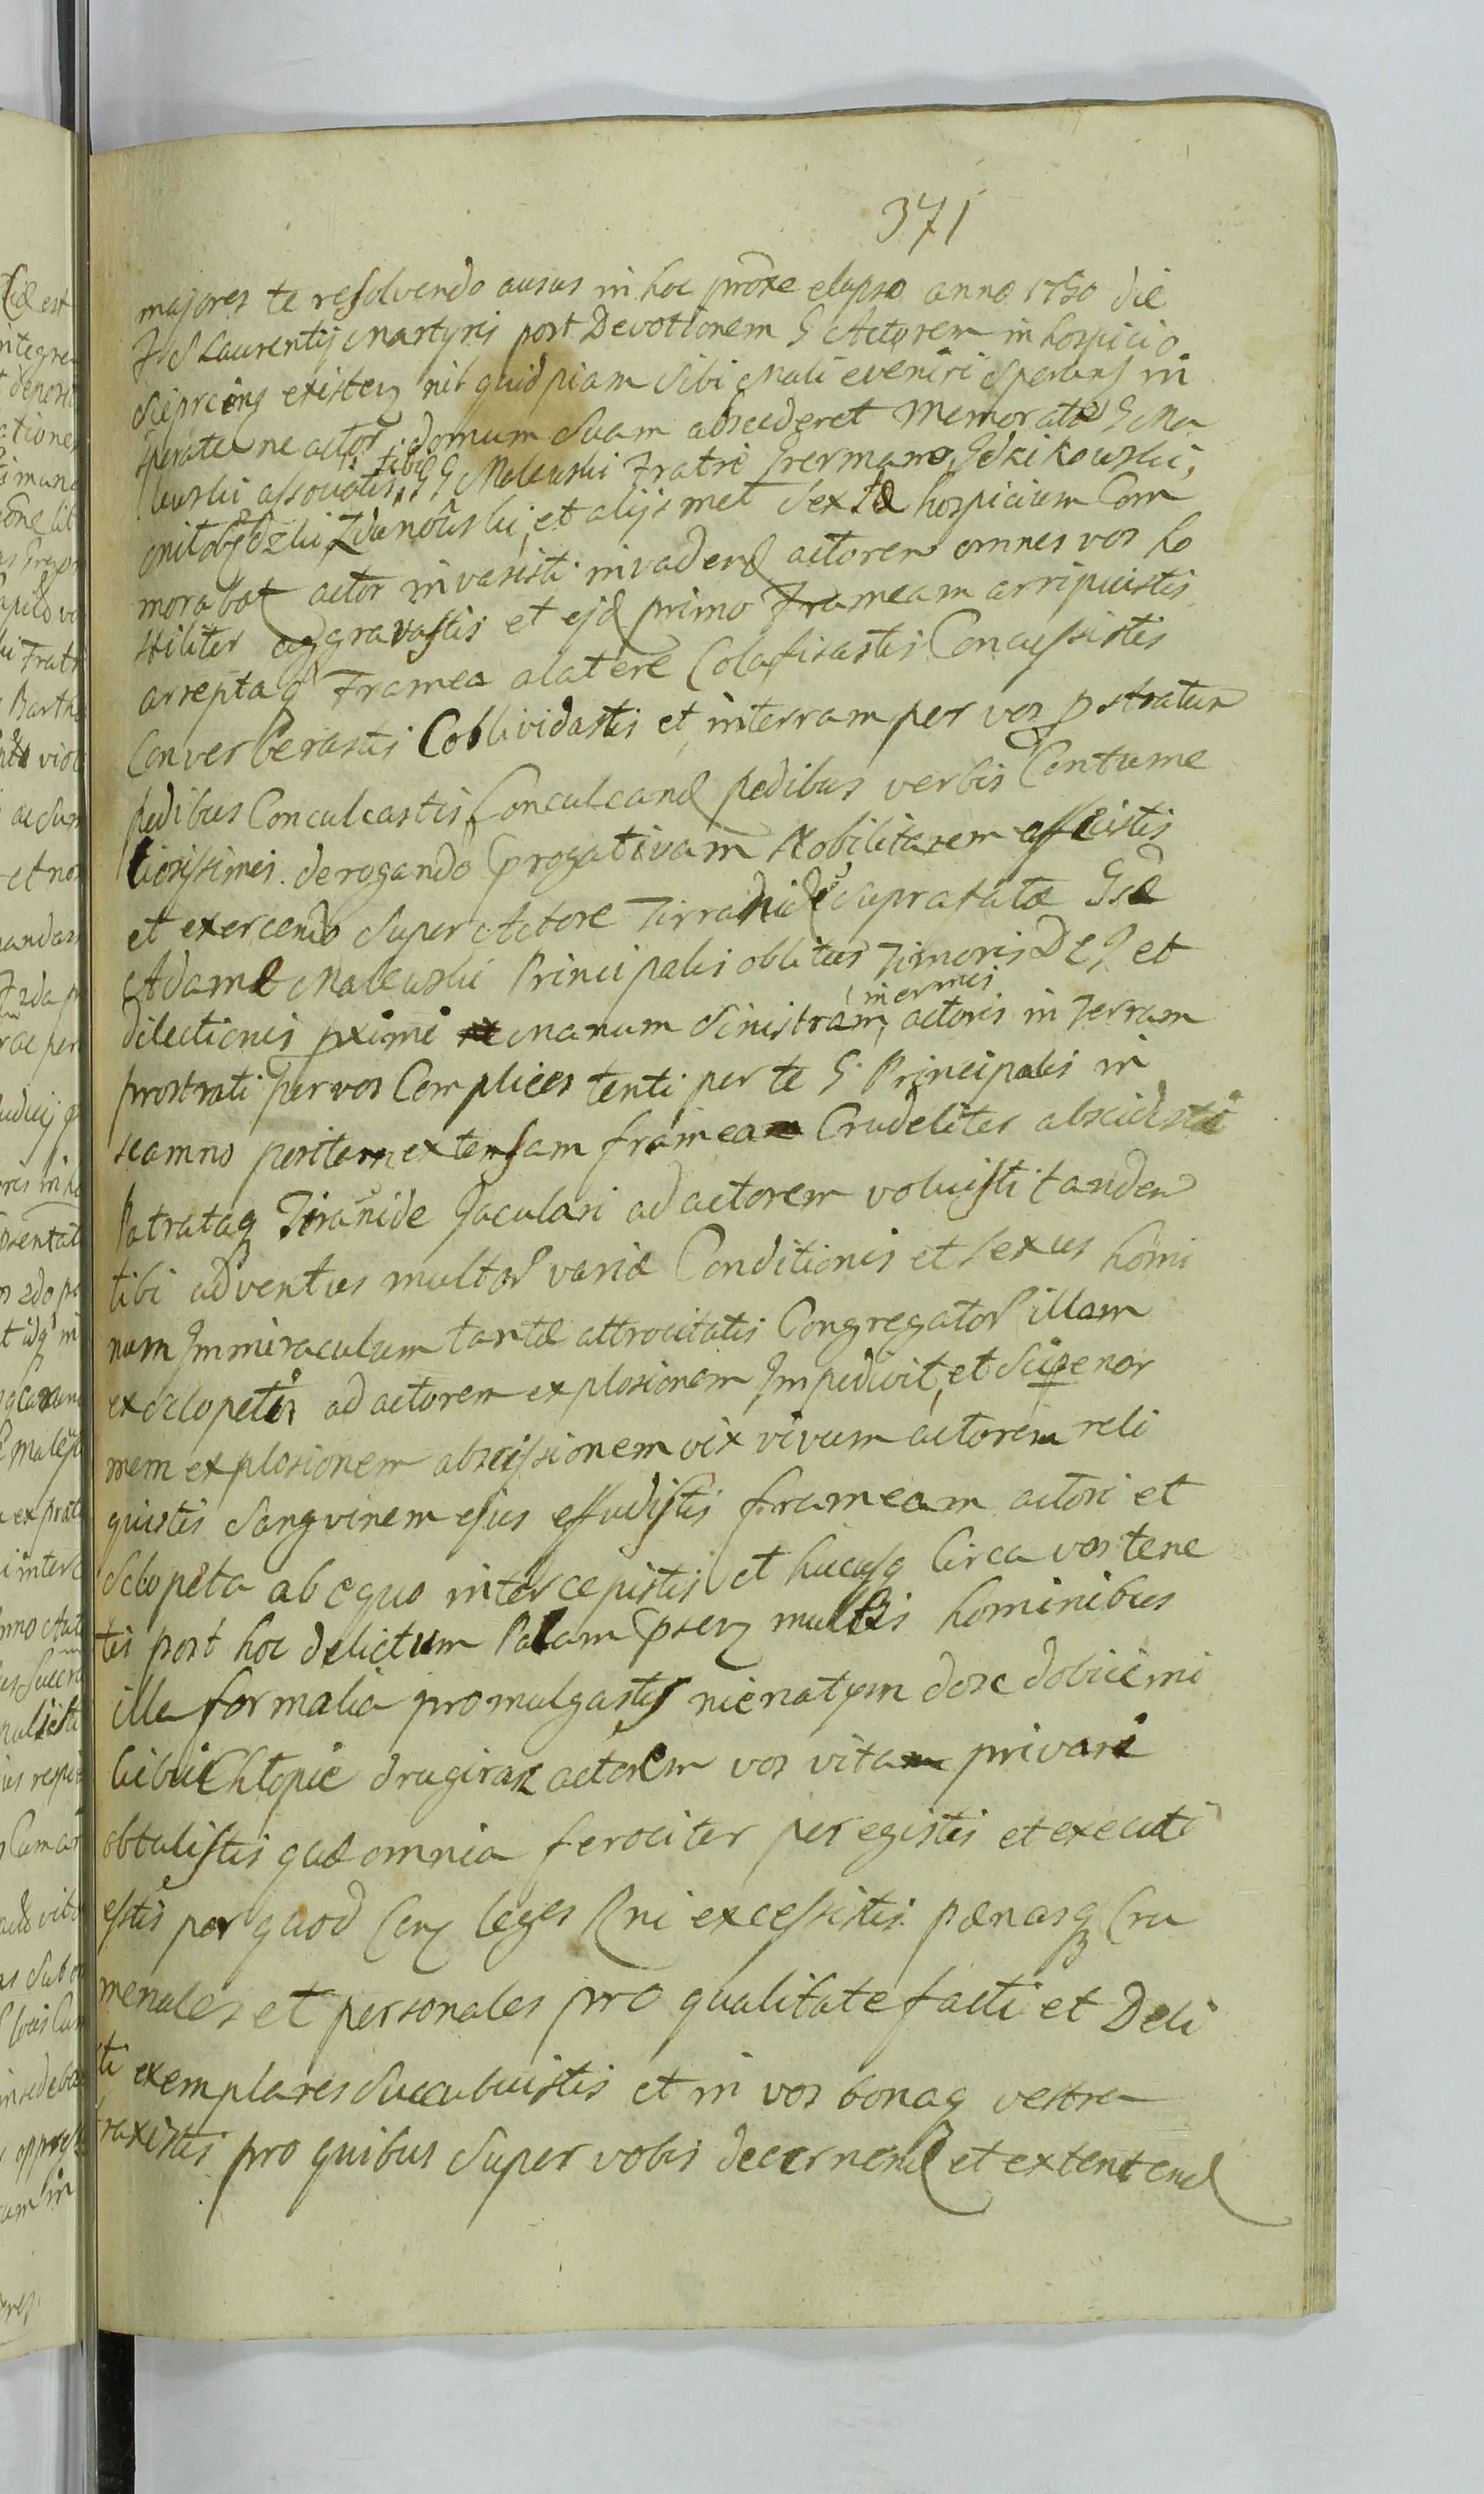 371
majores te resolvendo ausus in hoc proxe elapso anno 1750 die
F S Laurentij Martyris post Devotionem G Actorem in hospicio
existeq nil quidpiam sibi Mali eveniri Sperans in
sperate ne actor domum Suam abscederet Memorate G Ma
leuski assovatis tibi GG Maleuski Fratri Germano,
et alijs met Sex hospicium Com
morabat actor invasisti invadend actorem omnes vos ho
stiliter aggravastis et ejd primo Frameam arripuistis
arreptaq Framea alatere Colafisastis Concussistis
Converberastis Coblividastis et interram per vos pstratum
pedibus Conculcastis Conculcand pedibus verbis Contume
liosissimis derogando progativam Nobilitarem affecistis
et exercendo Super Actore Tirranide Suprafatae Gse
Adame Maleuski Principalis oblitus Timoris DEI et
dilectionis pximi Manum Sinistram, inermis actoris in Terram
prostrati per vos Complices tenti per te G Principalis in
scamno positam extensam framea Crudeliter abscidisti
Patrataq Tiranide Jaculari ad actorem voluisti tandem
tibi adventus multor variae Conditionis et sexus homi
num Immiraculum tantae attrocitatis Congregator illam
ex Sclopetis ad actorem explosionem Impedivit, et
mem explosionem abscissionem vix vivum actorem reli
quistis Sangvinem ejus effudistis frameam actori et
Sclopeta ab equo intercepistis et hucusq Circa vos tene
tis post hoc delictum Palam multis hominibus
illa formalia promulgastis nienatym dosc dobiiemi
Ciebui Chlopie drugiraz actorem vos vitam privare
obtulistis quae omnia ferociter peregistis et executi
estis per quod leges Rni excessistis paenasq Cri
menales et personales pro qualitate facti et Deli
cti exemplares Succubuistis et in vos bonaq vestra
traxistis pro quibus Super vobis decernend et extentend